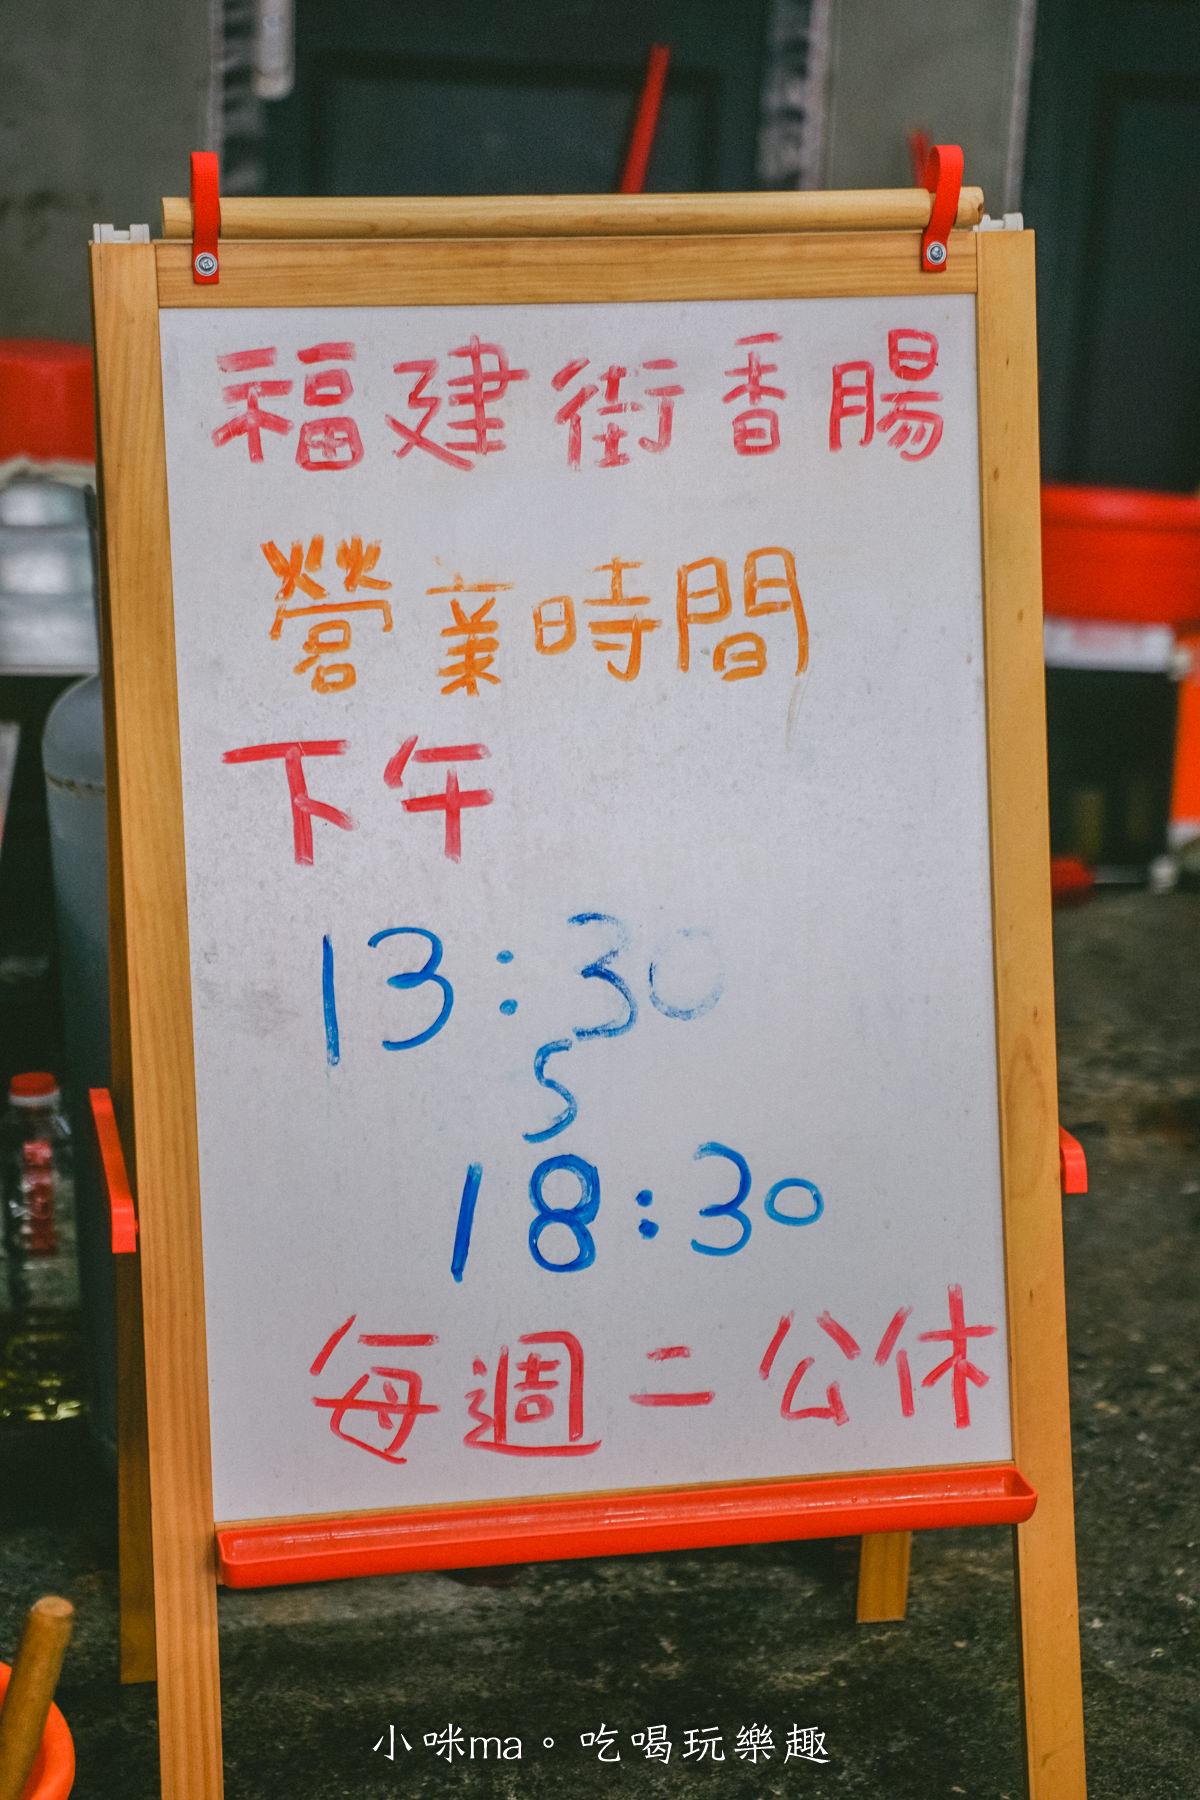 福建街香腸
營業時間
下午
13:30
5
18:30
每週二公休
小咪ma。吃喝玩樂趣